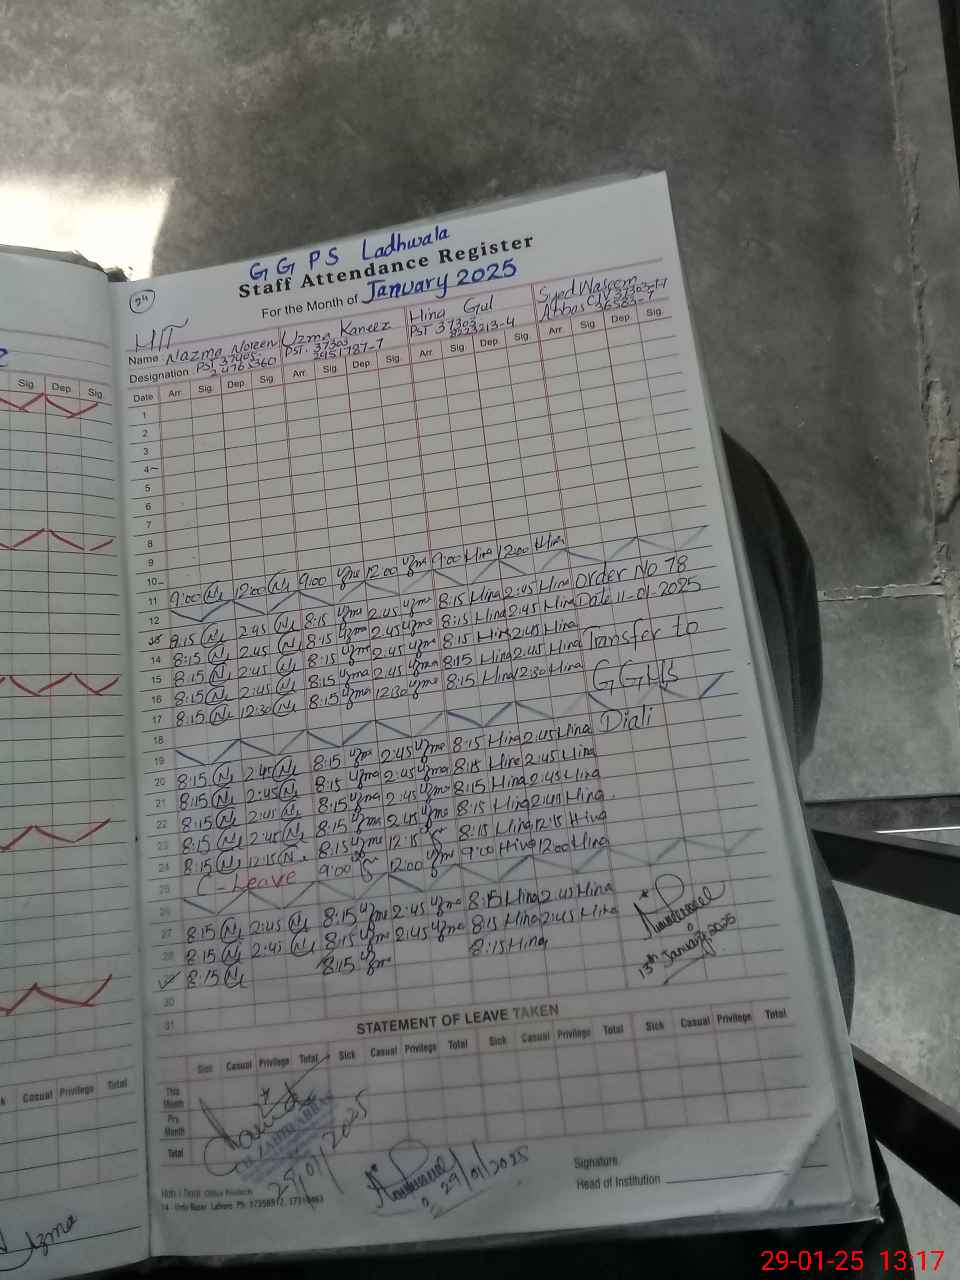 24
GGPS Ladhwala
Staff Attendance Register
For the Month of January 2025
HIT
Name Nazma Noreen Uzma Kaneez Hina Gul Syed Waseem Abbas
Designation PST PST. 37303 2951787-7 PST 37303
Date Arr. Sig. Dep. Sig. Arr. Sig. Dep. Sig. Arr. Sig. Dep. Sig. Arr. Sig. Dep. Sig.
1
2
3
4
5
6
7
8
9
10
11 9:00 12:00 9:00 Uzma 12:00 Uzma 9:00 Hina 12:00 Hina
12
8:15 2:45 8:15 Uzma 2:45 Uzma 8:15 Hina 2:45 Hina Order No 78
14 8:15 2:45 8:15 Uzma 2:45 Uzma 8:15 Hina 2:45 Hina Date 11-01-2025
15 8:15 2:45 8:15 Uzma 2:45 Uzma 8:15 Hina 2:45 Hina Transfer to
16 8:15 2:45 8:15 Uzma 2:45 Uzma 8:15 Hina 2:45 Hina
17 8:15 12:30 8:15 Uzma 12:30 Uzma 8:15 Hina 12:30 Hina GGHS
18
19 Diali
20 8:15 2:45 8:15 Uzma 2:45 Uzma 8:15 Hina 2:45 Hina
21 8:15 2:45 8:15 Uzma 2:45 Uzma 8:15 Hina 2:45 Hina
22 8:15 2:45 8:15 Uzma 2:45 Uzma 8:15 Hina 2:45 Hina
23 8:15 2:45 8:15 Uzma 2:45 Uzma 8:15 Hina 2:45 Hina
24 8:15 12:15 8:15 Uzma 12:15 8:15 Hina 12:15 Hina
25 C-Leave 9:00 12:00 Uzma 9:00 Hina 12:00 Hina
26
27 8:15 2:45 8:15 Uzma 2:45 Uzma 8:15 Hina 2:45 Hina
28 8:15 2:45 8:15 Uzma 2:45 Uzma 8:15 Hina 2:45 Hina
8:15 8:15 Uzma 8:15 Hina
13th January 2025
30
31
STATEMENT OF LEAVE TAKEN
Sick Casual Privilege Total Sick Casual Privilege Total Sick Casual Privilege Total Sick Casual Privilege Total
This Month
Pre. Month
Total
29/01/2025
29/01/2025
Signature
Head of Institution
14 - Urdu Bazar Lahore Ph:
Sig. Dep. Sig.
Casual Privilege Total
Uzma
29-01-25 13:17